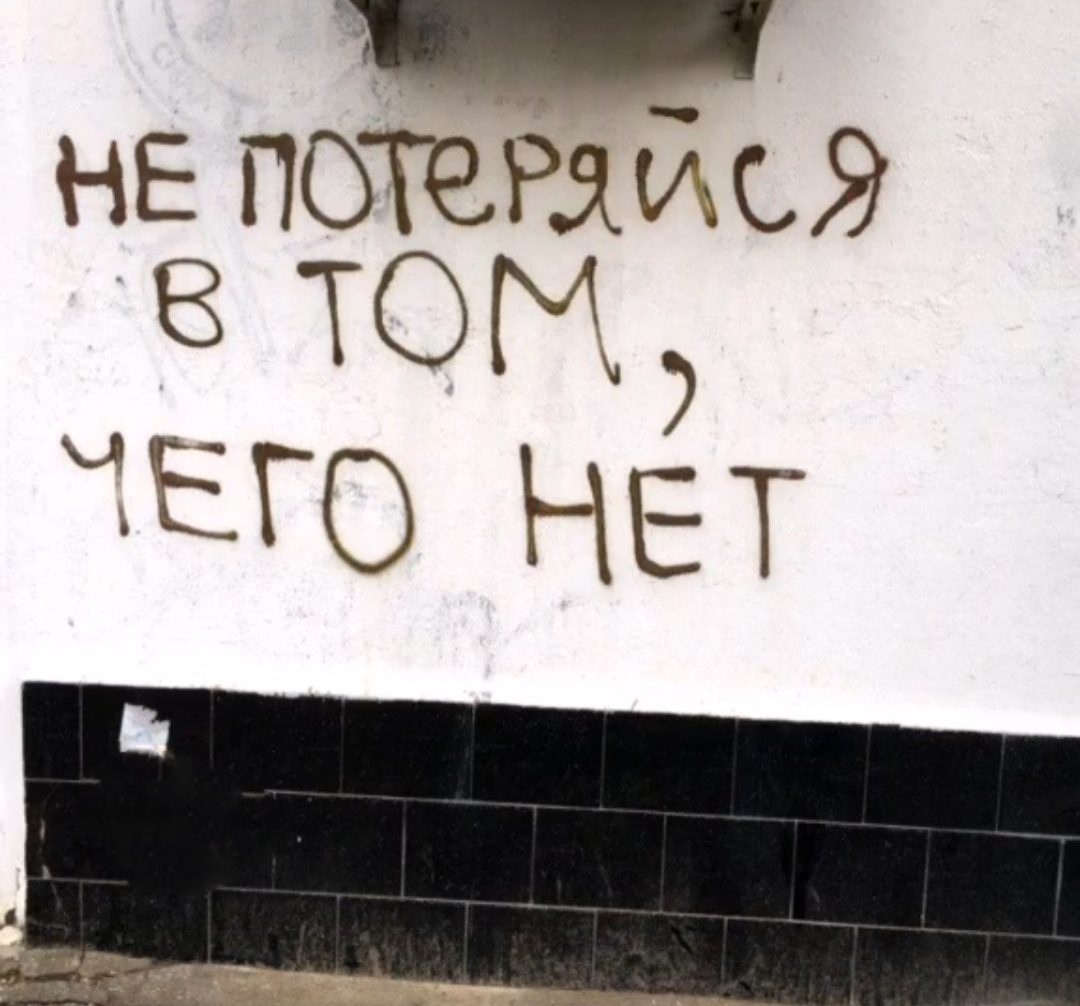 НЕ ПОТеРяйся
В ТОМ,
ЧЕГО НЕТ